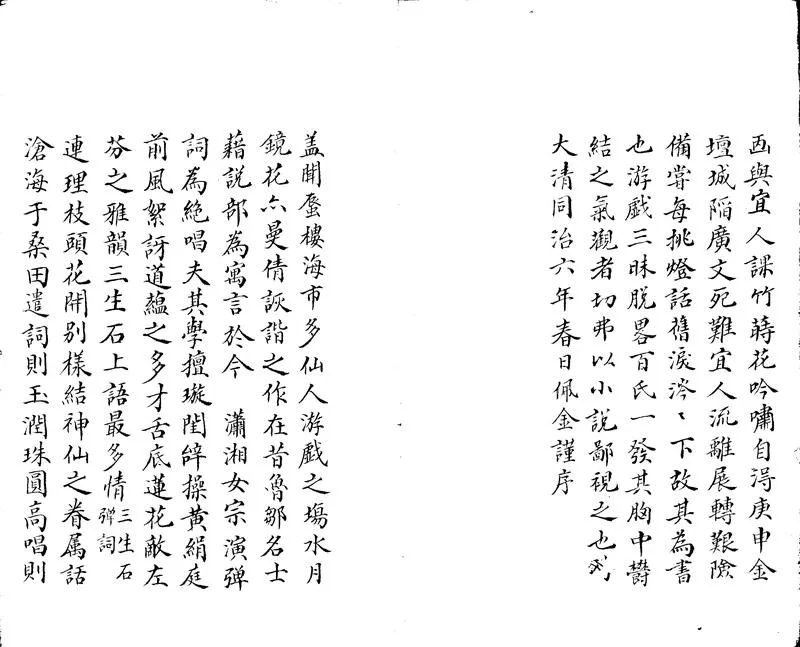 西與宜人課竹蒔花吟嘯自淂庚申金
壇城陷廣文死難宜人流離展轉艱險
備嘗每挑燈話舊淚涔〻下故其為書
也游戲三昧脱畧百氏一發其胸中欝
結之氣觀者切弗以小說鄙視之也
大清同治六年春日佩金謹序
盖聞蜃樓海市多仙人游戲之塲水月
鏡花亦曼倩詼諧之作在昔魯鄒名士
藉說部為寓言於今 瀟湘女宗演弹
詞為絶唱夫其學擅璇閨辭操黃絹庭
前風絮訝道蘊之多才舌底蓮花敵左
芬之雅韻三生石上語最多情三生石弹詞
連理枝頭花開別樣結神仙之眷属話
滄海于桑田遣詞則玉潤珠圓高唱則